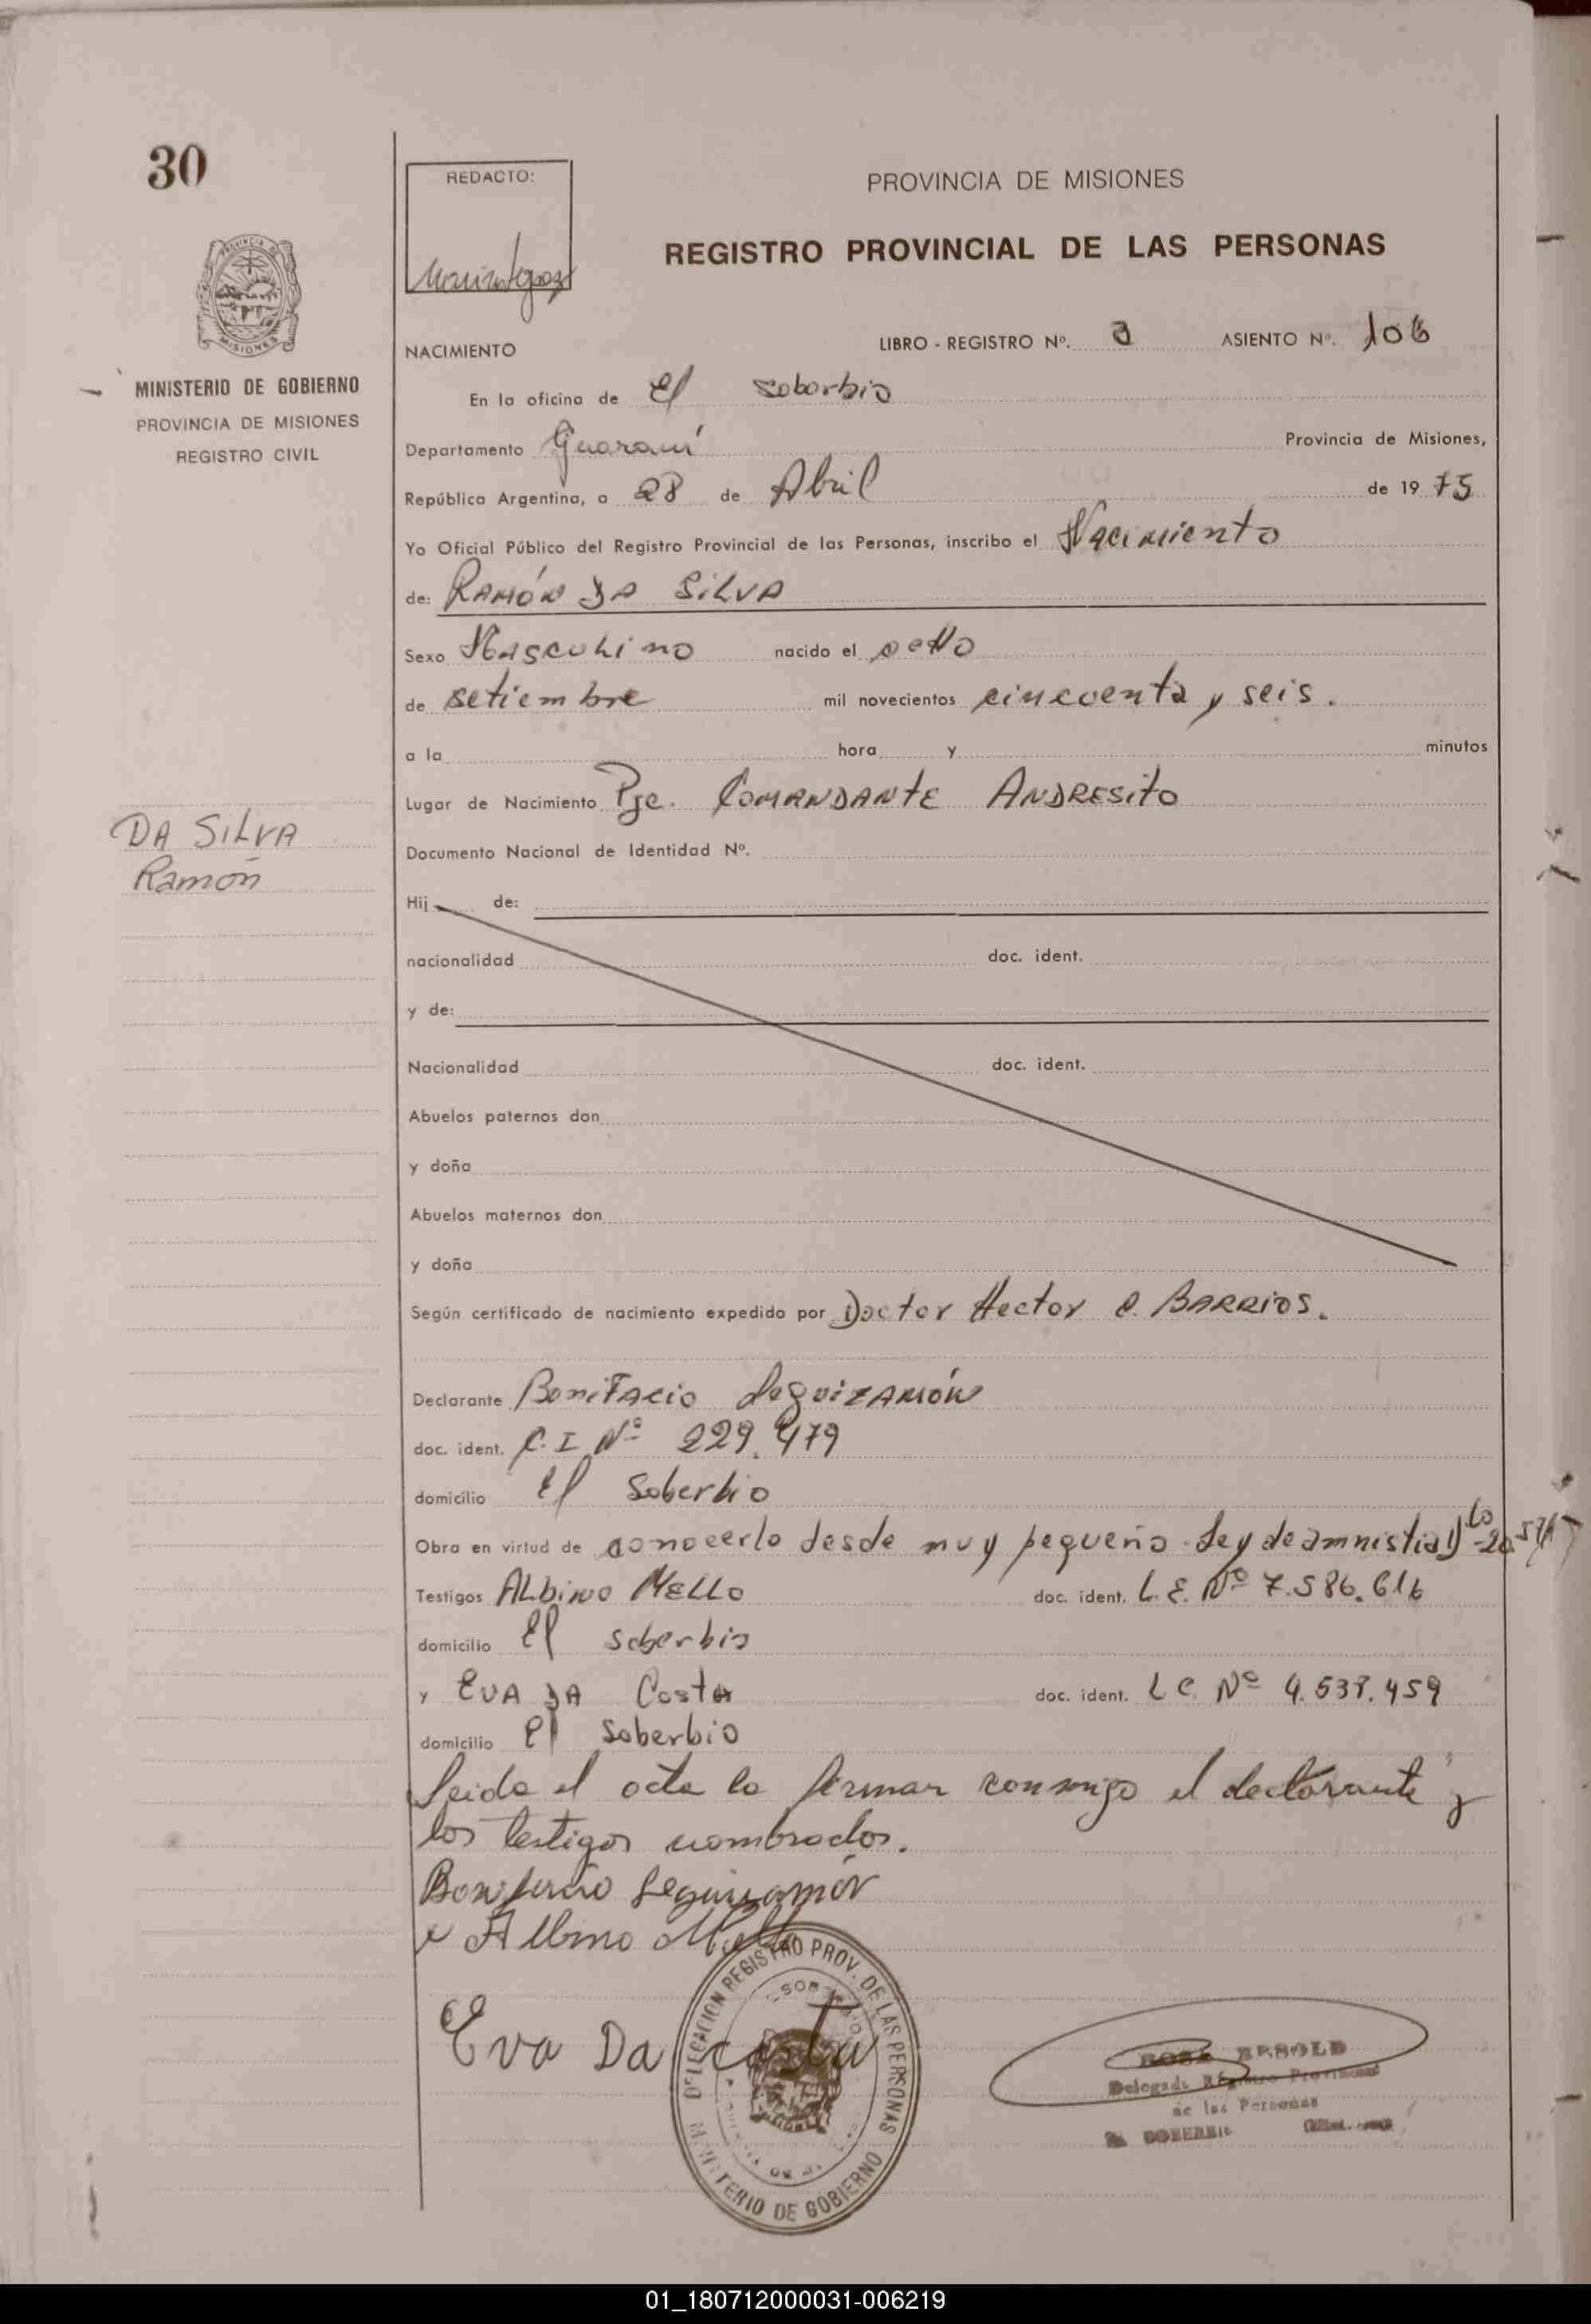 30
REDACTO:
PROVINCIA DE MISIONES
REGISTRO PROVINCIAL DE LAS PERSONAS
MINISTERIO DE GOBIERNO
PROVINCIA DE MISIONES
REGISTRO CIVIL
NACIMIENTO LIBRO - REGISTRO Nº. 3 ASIENTO Nº. 106
En la oficina de El Soberbio
Departamento Guaraní Provincia de Misiones,
República Argentina, a 28 de Abril de 1975
Yo Oficial Público del Registro Provincial de las Personas, inscribo el Nacimiento
de: RAMÓN DA SILVA
Sexo Masculino nacido el ocho
de setiembre mil novecientos cincuenta y seis.
a la hora y minutos
Lugar de Nacimiento Pje. COMANDANTE ANDRESITO
DA SILVA
Ramón
Documento Nacional de Identidad Nº.
Hij de:
nacionalidad doc. ident.
y de:
Nacionalidad doc. ident.
Abuelos paternos don
y doña
Abuelos maternos don
y doña
Según certificado de nacimiento expedido por Doctor Hector C. BARRIOS.
Declarante BONIFACIO LEGUIZAMÓN
doc. ident. C.I Nº 229.479
domicilio El Soberbio
Obra en virtud de conocerlo desde muy pequeño. Ley de amnistia
Testigos ALBINO MELLO doc. ident. L.E. Nº 7.586.616
domicilio El Soberbio
y EVA DA Costa doc. ident. L C Nº 4.538.459
domicilio El Soberbio
Leida el acta la firman conmigo el declarante y
los testigos nombrados.
Bonifacio Leguizamón
Albino Mello
Eva Da Costa
DELEGACION REGISTRO PROV. DE LAS PERSONAS
MINISTERIO DE GOBIERNO
Delegado Registro Provincial
de las Personas
EL SOBERBIO
01_180712000031-006219